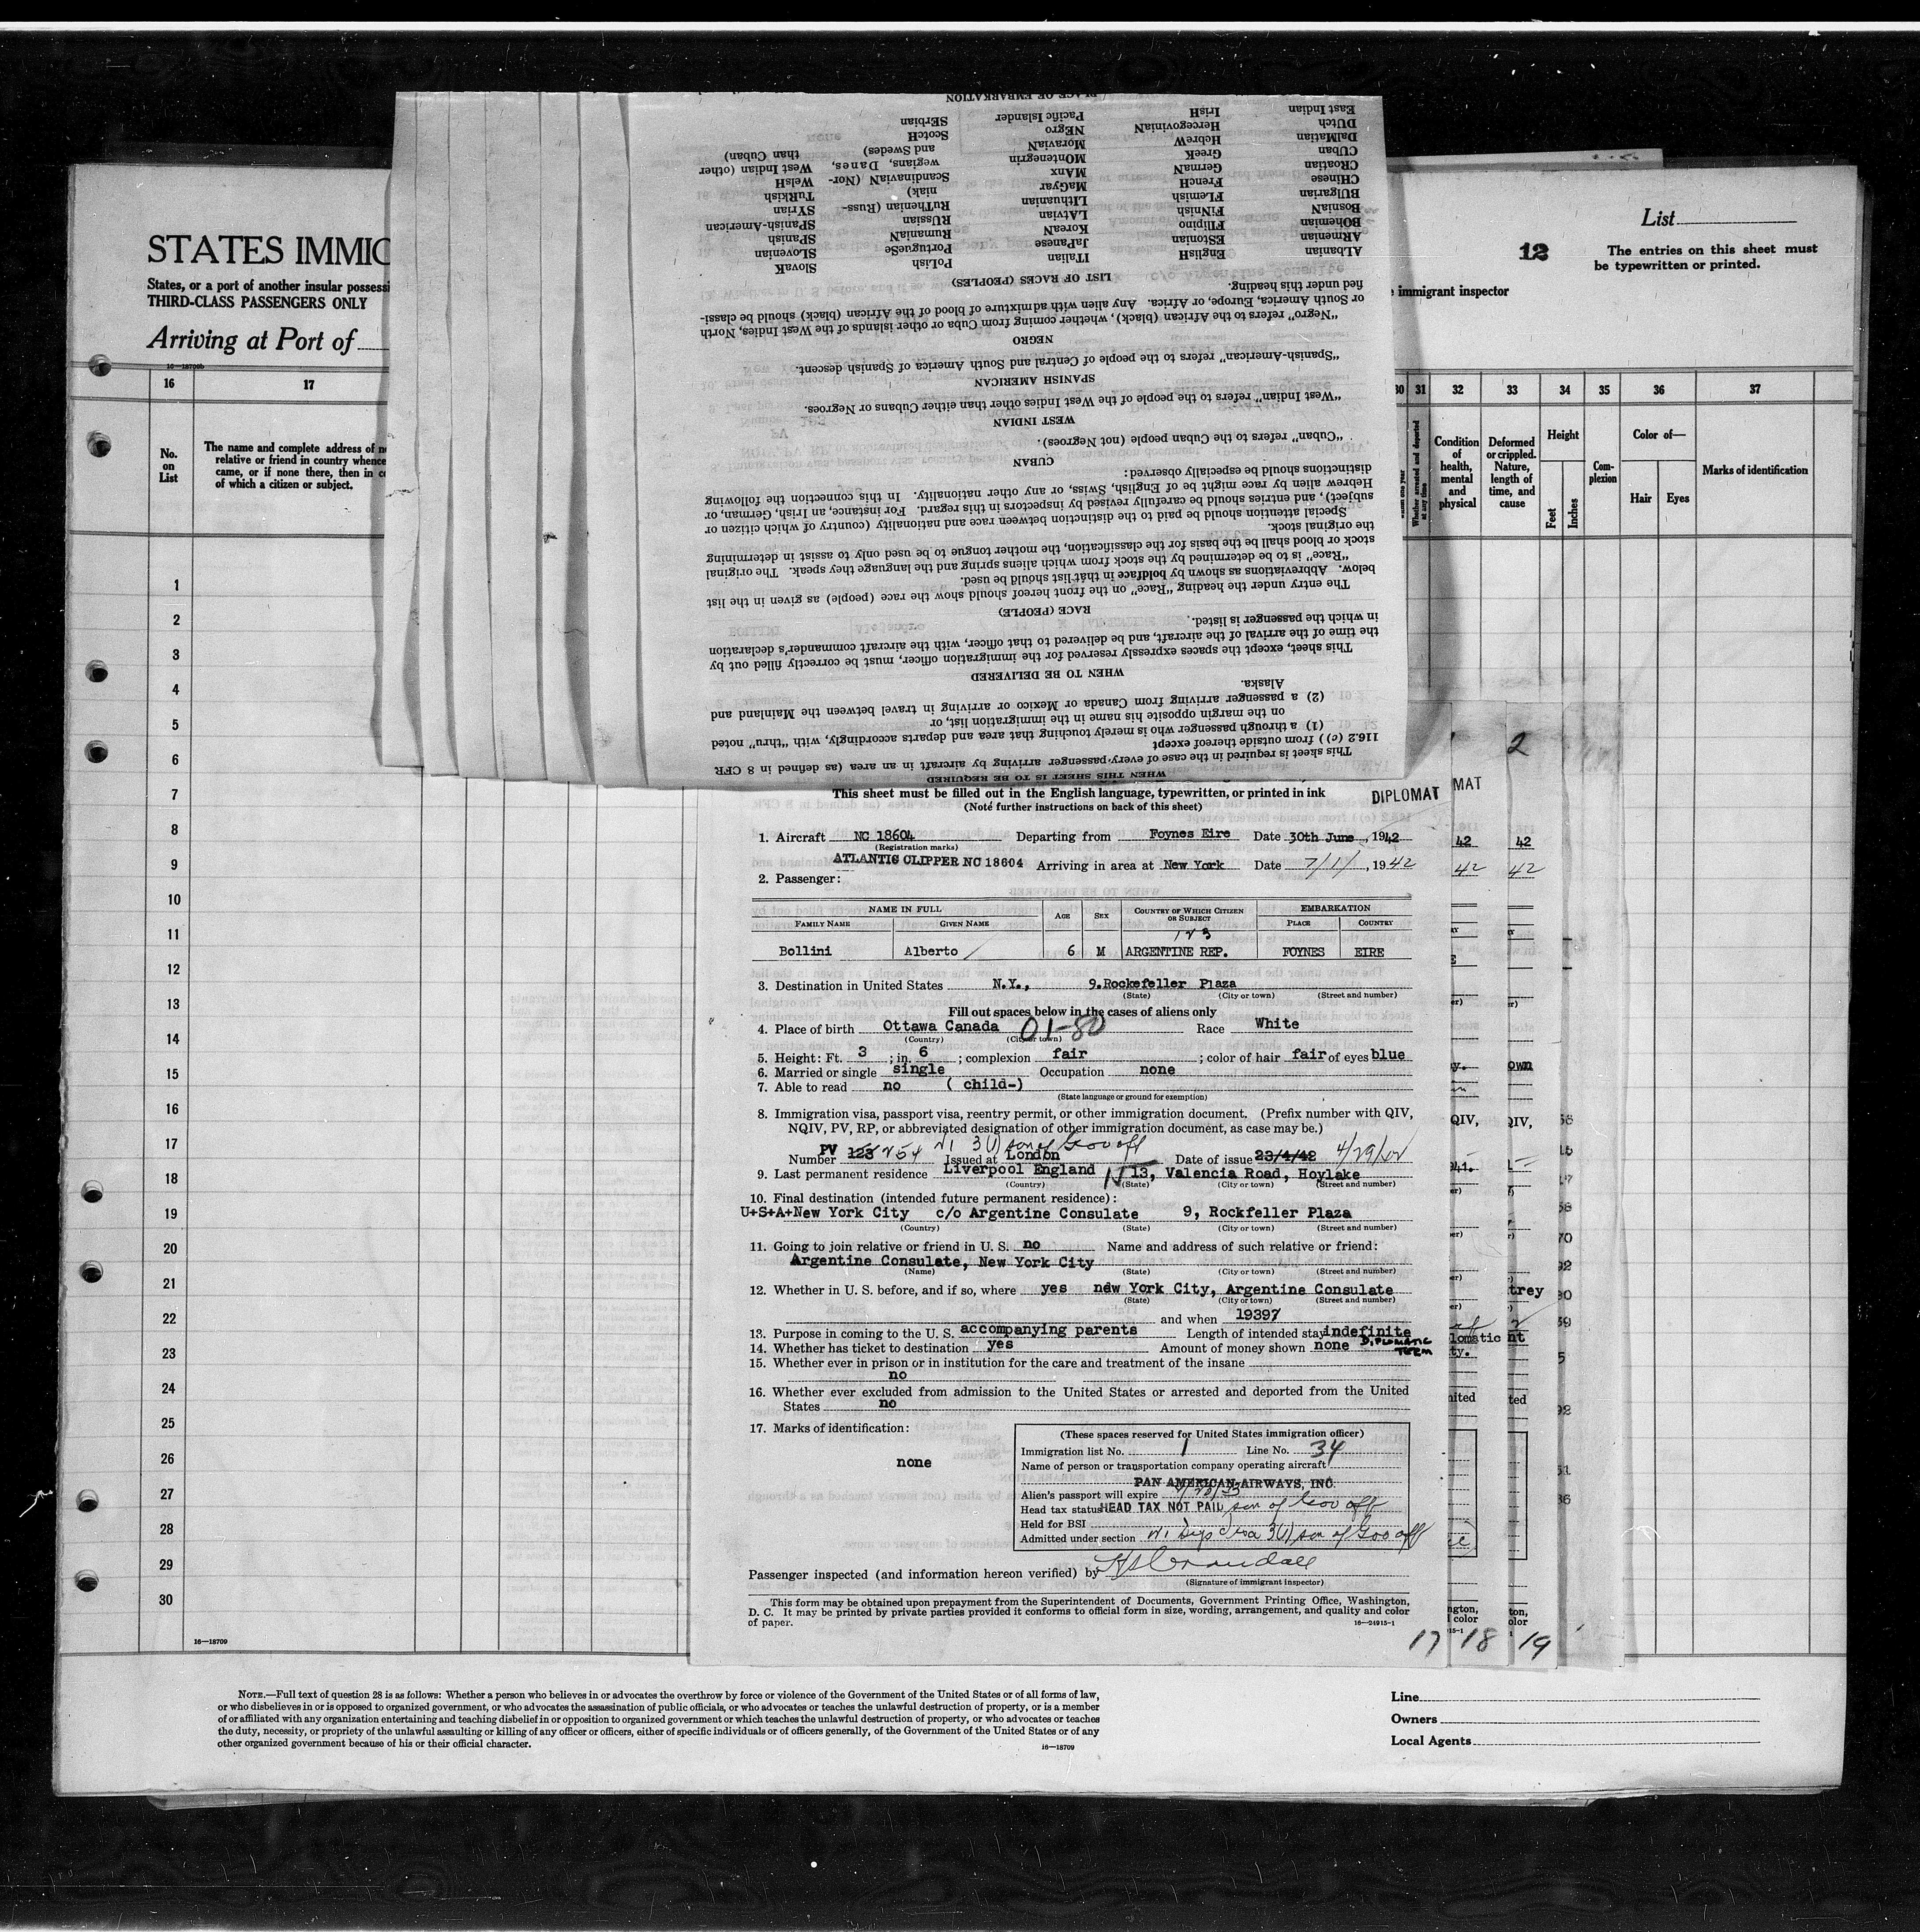 STATES IMMIG
States, or a port of another insular possessi
THIRD-CLASS PASSENGERS ONLY
Arriving at Port of
16—18709b
16 17
No. on List
The name and complete address of ne
relative or friend in country whence
came, or if none there, then in co
of which a citizen or subject.
1
2
3
4
5
6
7
8
9
10
11
12
13
14
15
16
17
18
19
20
21
22
23
24
25
26
27
28
29
30
16—18709
List
12
The entries on this sheet must
be typewritten or printed.
immigrant inspector
30 31 32 33 34 35 36 37
Whether arrested and deported at any time
Condition of health, mental and physical
Deformed or crippled. Nature, length of time, and cause
Height
Feet Inches
Complexion
Color of—
Hair Eyes
Marks of identification
WHEN THIS SHEET IS TO BE REQUIRED
This sheet is required in the case of every passenger arriving by aircraft in an area (as defined in 8 CFR
116.2 (c)) from outside thereof except
(1) a through passenger who is merely touching that area and departs accordingly, with "thru" noted
on the margin opposite his name in the immigration list, or
(2) a passenger arriving from Canada or Mexico or arriving in travel between the Mainland and
Alaska.
WHEN TO BE DELIVERED
This sheet, except the spaces expressly reserved for the immigration officer, must be correctly filled out by
the time of the arrival of the aircraft, and be delivered to that officer, with the aircraft commander's declaration
in which the passenger is listed.
RACE (PEOPLE)
The entry under the heading "Race" on the front hereof should show the race (people) as given in the list
below. Abbreviations as shown by boldface in that list should be used.
"Race" is to be determined by the stock from which aliens spring and the language they speak. The original
stock or blood shall be the basis for the classification, the mother tongue to be used only to assist in determining
the original stock.
Special attention should be paid to the distinction between race and nationality (country of which citizen or
subject), and entries should be carefully revised by inspectors in this regard. For instance, an Irish, German, or
Hebrew alien by race might be of English, Swiss, or any other nationality. In this connection the following
distinctions should be especially observed:
CUBAN
"Cuban" refers to the Cuban people (not Negroes).
WEST INDIAN
"West Indian" refers to the people of the West Indies other than either Cubans or Negroes.
SPANISH AMERICAN
"Spanish-American" refers to the people of Central and South America of Spanish descent.
NEGRO
"Negro" refers to the African (black), whether coming from Cuba or other islands of the West Indies, North
or South America, Europe, or Africa. Any alien with admixture of blood of the African (black) should be classi-
fied under this heading.
LIST OF RACES (PEOPLES)
ALbanian EnglisH ITalian PoLish SlovaK
ARmenian ESTonian JaPanese PortugueSe SLovenian
BOhemian FIlipino KoreaN RumaniaN SPanisH
BosniaN FiNnish LAtvian RUssian SPanish-American
BUlgarian FLemish LIthuanian RuThenian (Russ- SYrian
CHinese FrencH MaGyar niak) TuRkish
CRoatian GermaN MAnx ScandinaviaN (Nor- WelsH
CUban GreeK MOntenegrin wegians, Danes, West Indian (other
DalMatian HebreW MoraviaN and Swedes) than Cuban)
DUtch HercegoviniaN NEgro ScotcH
East Indian IrisH Pacific Islander SErbian
PLACE OF EMBARKATION
This sheet must be filled out in the English language, typewritten, or printed in ink
(Note further instructions on back of this sheet)
DIPLOMAT
MAT
2
1. Aircraft NC 18604 Departing from Foynes Eire Date 30th June, 1942
(Registration marks)
ATLANTIC CLIPPER NC 18604 Arriving in area at New York Date 7/1/, 1942
2. Passenger:
NAME IN FULL AGE SEX COUNTRY OF WHICH CITIZEN OR SUBJECT EMBARKATION
FAMILY NAME GIVEN NAME PLACE COUNTRY
Bollini Alberto 6 M ARGENTINE REP. FOYNES EIRE
3. Destination in United States N.Y., 9.Rockefeller Plaza
(State) (City or town) (Street and number)
Fill out spaces below in the cases of aliens only
4. Place of birth Ottawa Canada 01-80 Race White
(Country) (City or town)
5. Height: Ft. 3 ; in. 6 ; complexion fair ; color of hair fair of eyes blue
6. Married or single single Occupation none
7. Able to read no ( child-)
(State language or ground for exemption)
8. Immigration visa, passport visa, reentry permit, or other immigration document. (Prefix number with QIV,
NQIV, PV, RP, or abbreviated designation of other immigration document, as case may be.)
3(1) son of Gov off
Number PV 123 254 Issued at London Date of issue 23/4/42 4/29/42
9. Last permanent residence Liverpool England 13, Valencia Road, Hoylake
(Country) (State) (City or town) (Street and number)
10. Final destination (intended future permanent residence):
U+S+A+New York City c/o Argentine Consulate 9, Rockfeller Plaza
(Country) (State) (City or town) (Street and number)
11. Going to join relative or friend in U. S. no Name and address of such relative or friend:
Argentine Consulate, New York City
(Name) (State) (City or town) (Street and number)
12. Whether in U. S. before, and if so, where yes new York City, Argentine Consulate
(State) (City or town) (Street and number)
and when 19397
13. Purpose in coming to the U. S. accompanying parents Length of intended stay indefinite
14. Whether has ticket to destination yes Amount of money shown none DIPLOMATIC TERM
15. Whether ever in prison or in institution for the care and treatment of the insane
no
16. Whether ever excluded from admission to the United States or arrested and deported from the United
States no
17. Marks of identification:
none
(These spaces reserved for United States immigration officer)
Immigration list No. 1 Line No. 34
Name of person or transportation company operating aircraft
PAN AMERICAN AIRWAYS, INC
Alien's passport will expire
Head tax status HEAD TAX NOT PAID son of Gov off
Held for BSI
Admitted under section 3(1) son of Gov off
Passenger inspected (and information hereon verified) by HS Crandall
(Signature of immigrant inspector)
This form may be obtained upon prepayment from the Superintendent of Documents, Government Printing Office, Washington,
D. C. It may be printed by private parties provided it conforms to official form in size, wording, arrangement, and quality and color
of paper.
16—24915-1
17 18 19
NOTE.—Full text of question 28 is as follows: Whether a person who believes in or advocates the overthrow by force or violence of the Government of the United States or of all forms of law,
or who disbelieves in or is opposed to organized government, or who advocates the assassination of public officials, or who advocates or teaches the unlawful destruction of property, or is a member
of or affiliated with any organization entertaining and teaching disbelief in or opposition to organized government or which teaches the unlawful destruction of property, or who advocates or teaches
the duty, necessity, or propriety of the unlawful assaulting or killing of any officer or officers, either of specific individuals or of officers generally, of the Government of the United States or of any
other organized government because of his or their official character.
16—18709
Line
Owners
Local Agents